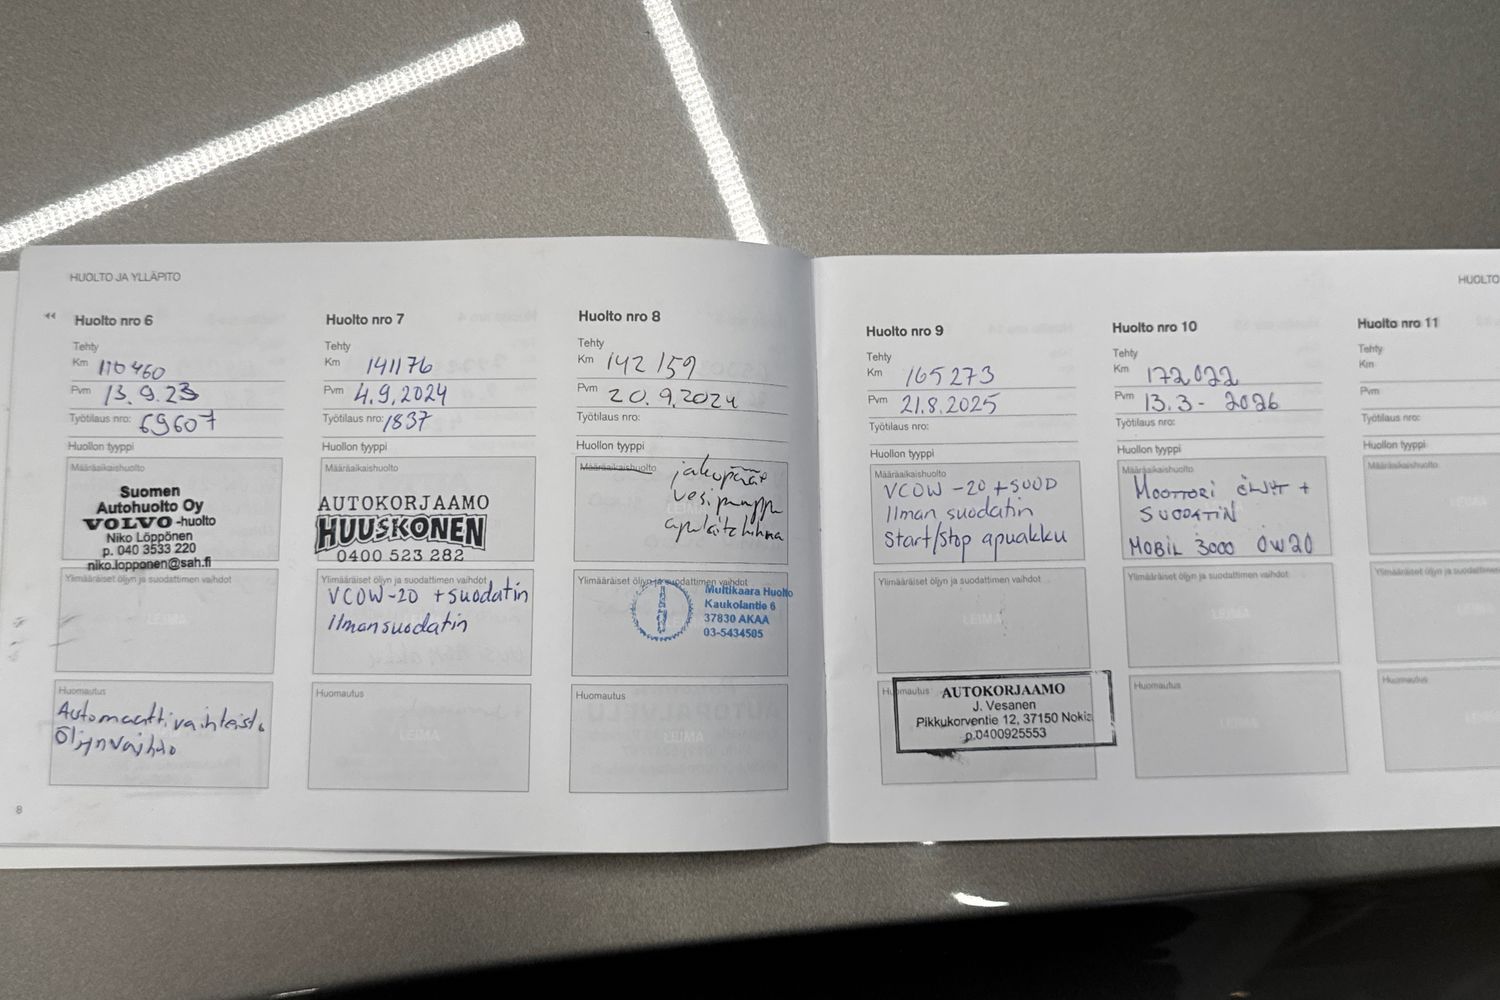 HUOLTO JA YLLÄPITO
Huolto nro 6
Tehty
Km 110460
Pvm 13.9.23
Työtilaus nro: 69607
Huollon tyyppi
Määräaikaishuolto
Suomen
Autohuolto Oy
VOLVO -huolto
Niko Löppönen
p. 040 3533 220
niko.lopponen@sah.fi
Ylimääräiset öljyn ja suodattimen vaihdot
LEIMA
Huomautus
Automaattivaihteisto
Öljynvaihto
8
Huolto nro 7
Tehty
Km 141176
Pvm 4.9.2024
Työtilaus nro: 1837
Huollon tyyppi
Määräaikaishuolto
AUTOKORJAAMO
HUUSKONEN
0400 523 282
Ylimääräiset öljyn ja suodattimen vaihdot
VCOW-20 + suodatin
Ilmansuodatin
Huomautus
LEIMA
Huolto nro 8
Tehty
Km 142 159
Pvm 20.9.2024
Työtilaus nro:
Huollon tyyppi
Määräaikaishuolto
jakopäät
vesipumppu
apulaitehihna
Ylimääräiset öljyn ja suodattimen vaihdot
Multikaara Huolto
Kaukolantie 6
37830 AKAA
03-5434505
Huomautus
LEIMA
HUOLTO
Huolto nro 9
Tehty
Km 165273
Pvm 21.8.2025
Työtilaus nro:
Huollon tyyppi
Määräaikaishuolto
VCOW-20 + SUOD
Ilman suodatin
Start/stop apuakku
Ylimääräiset öljyn ja suodattimen vaihdot
LEIMA
Huomautus
AUTOKORJAAMO
J. Vesanen
Pikkukorventie 12, 37150 Nokia
p.0400925553
Huolto nro 10
Tehty
Km 172022
Pvm 13.3- 2026
Työtilaus nro:
Huollon tyyppi
Määräaikaishuolto
MOOTTORI ÖLJYT +
SUODATIN
MOBIL 3000 0W20
Ylimääräiset öljyn ja suodattimen vaihdot
LEIMA
Huomautus
LEIMA
Huolto nro 11
Tehty
Km
Pvm
Työtilaus nro:
Huollon tyyppi
Määräaikaishuolto
Ylimääräiset öljyn ja suodattimen
Huomautus